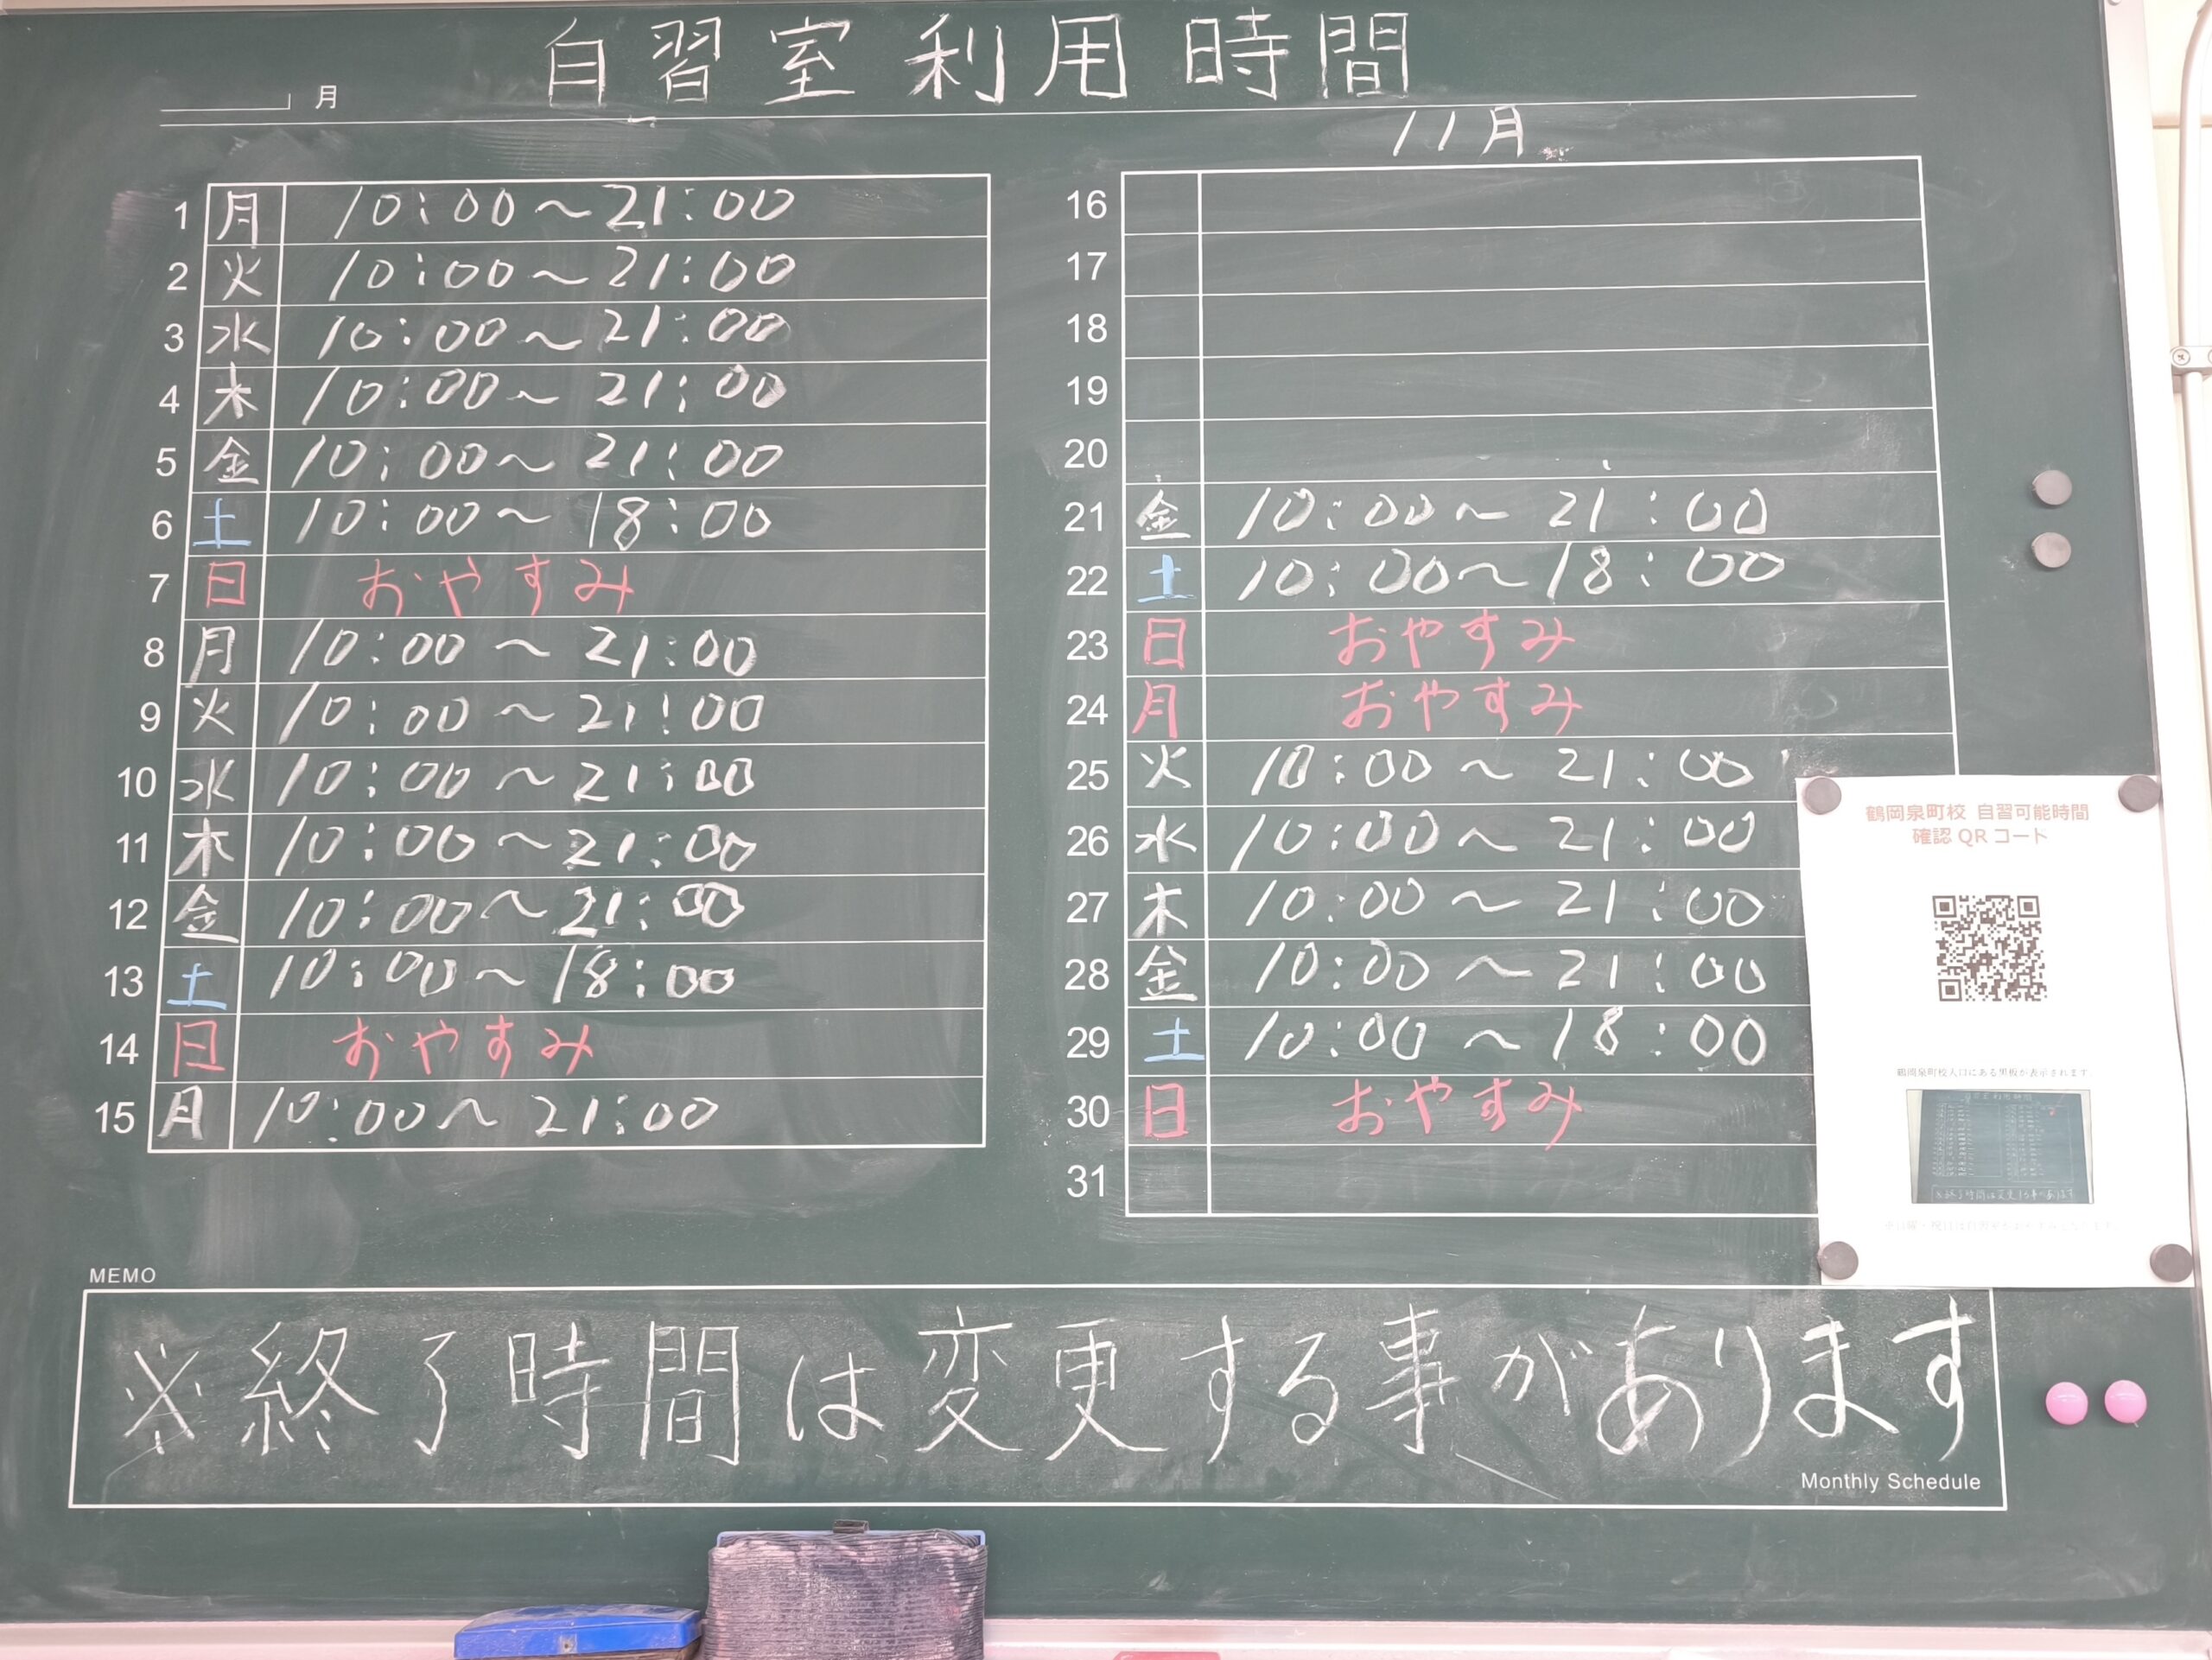 自習室利用時間
月
11月
1 月 10:00～21:00
2 火 10:00～21:00
3 水 10:00～21:00
4 木 10:00～21:00
5 金 10:00～21:00
6 土 10:00～18:00
7 日 おやすみ
8 月 10:00～21:00
9 火 10:00～21:00
10 水 10:00～21:00
11 木 10:00～21:00
12 金 10:00～21:00
13 土 10:00～18:00
14 日 おやすみ
15 月 10:00～21:00
16
17
18
19
20
21 金 10:00～21:00
22 土 10:00～18:00
23 日 おやすみ
24 月 おやすみ
25 火 10:00～21:00
26 水 10:00～21:00
27 木 10:00～21:00
28 金 10:00～21:00
29 土 10:00～18:00
30 日 おやすみ
31
鶴岡泉町校 自習可能時間
確認QRコート
鶴岡泉町校入口にある黒板が表示されます
※終了時間は変更する事があります
MEMO
※終了時間は変更する事があります
Monthly Schedule